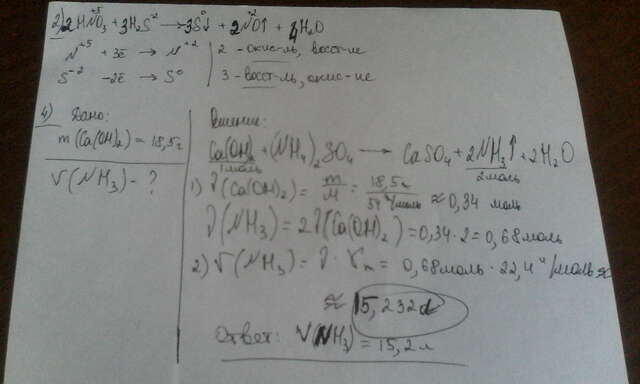 2) 2HN⁺⁵O₃ + 3H₂S⁻² → 3S⁰↓ + 2N⁺²O↑ + 4H₂O
N⁺⁵ + 3ē → N⁺² | 2 - окис-ль, восст-ие
S⁻² - 2ē → S⁰ | 3 - восст-ль, окис-ие
4) Дано:
m(Ca(OH)₂) = 18,5г
V(NH₃) - ?
Решение:
Ca(OH)₂ + (NH₄)₂SO₄ → CaSO₄ + 2NH₃↑ + 2H₂O
1моль 2моль
1) ν(Ca(OH)₂) = m/M = 18,5г/54г/моль ≈ 0,34 моль
ν(NH₃) = 2ν(Ca(OH)₂) = 0,34 · 2 = 0,68моль
2) V(NH₃) = ν · Vm = 0,68моль · 22,4л/моль ≈
≈ 15,232л
Ответ: V(NH₃) = 15,2л